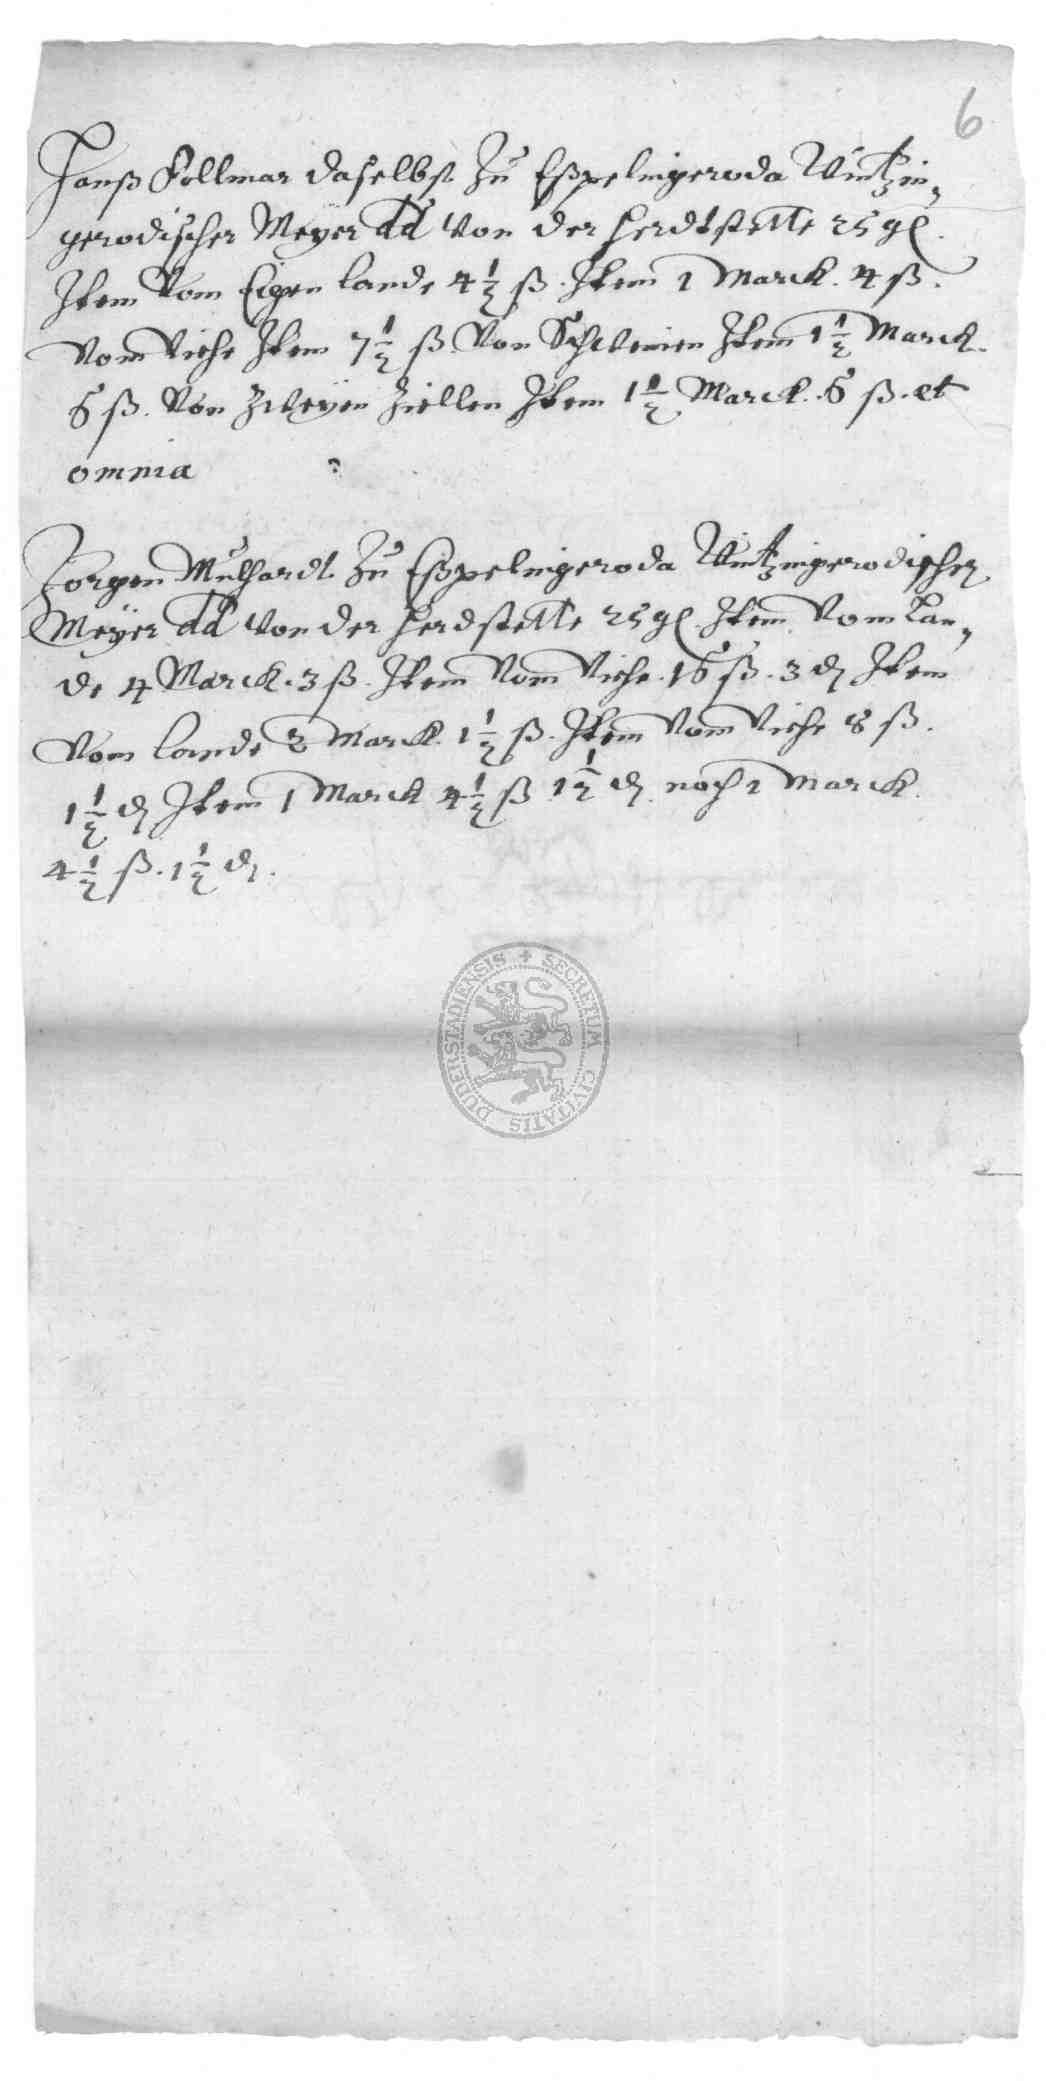 6
Hanß Follmar daselbst Zu Eßpelingeroda Wintzin,
gerodischer Meÿer dd von der herdtstette 25 gl.
Item vom Eigen lande 4 1/2 ß. Item 1 Marck. 4 ß.
vom viehe Item 7 1/2 ß Von Schweinen Item 1 1/2 Marck.
6 ß. Von Zweÿen Ziellen Item 1 1/2 Marck. 6 ß. et
omnia
Jorgen Mulhardt Zu Eßpelingeroda Wintzingerodischer
Meÿer dd von der herdstette 25 gl. Item vom Lan,
de 4 Marck. 3 ß. Item vom viehe. 16 ß. 3 d Item
vom lande 2 Marck. 1 1/2 ß. Item vom viehe 8 ß.
1 1/2 d Item 1 Marck 4 1/2 ß 1 1/2 d. noch 1 Marck.
4 1/2 ß. 1 1/2 d.
SECRETUM CIVITATIS DUDERSTADIENSIS